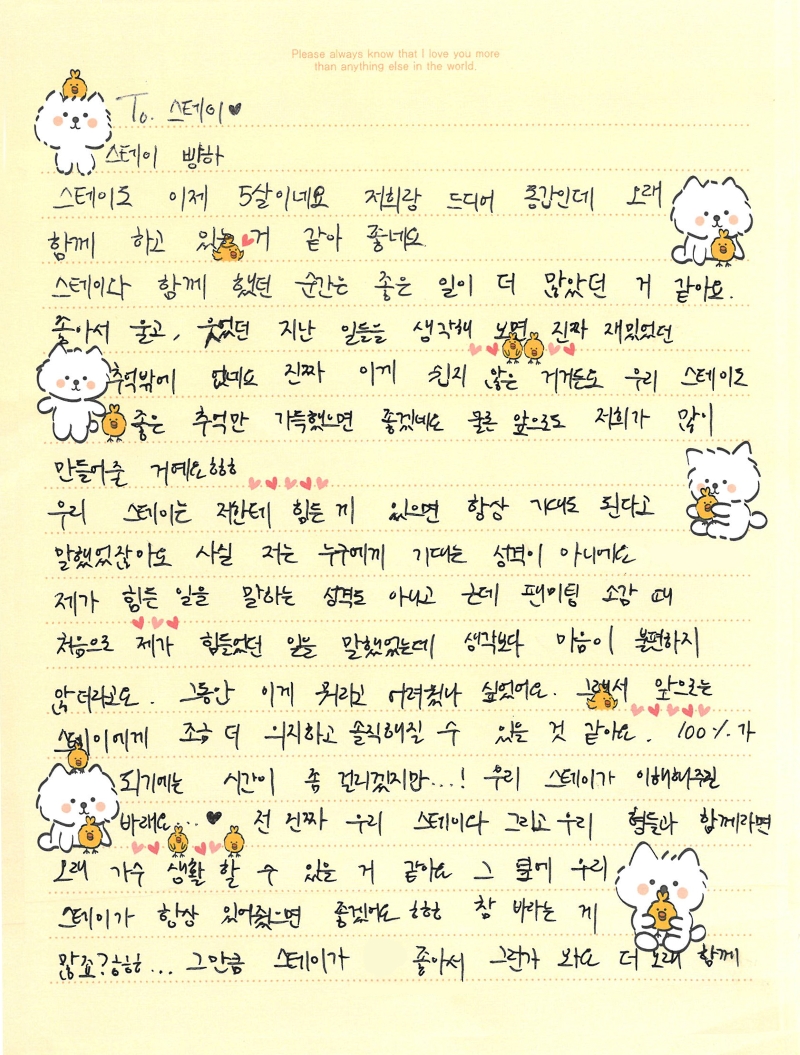 Please always know that I love you more
than anything else in the world.
To. 스테이♥
스테이 빵하
스테이도 이제 5살이네요 저희랑 드디어 동갑인데 오래
함께 하고 있는 거 같아 좋네요
스테이와 함께 했던 순간는 좋은 일이 더 많았던 거 같아요.
좋아서 울고, 웃었던 지난 일들을 생각해 보면 진짜 재밌었던
추억밖에 없네요 진짜 이게 쉽지 않은 거거든요 우리 스테이도
좋은 추억만 가득했으면 좋겠네요 물론 앞으로도 저희가 많이
만들어줄 거예요ㅎㅎㅎ
우리 스테이는 저한테 힘든 게 있으면 항상 기대도 된다고
말했었잖아요 사실 저는 누구에게 기대는 성격이 아니에요
제가 힘든 일을 말하는 성격도 아니고 근데 팬미팅 소감 때
처음으로 제가 힘들었던 일을 말했었는데 생각보다 마음이 불편하지
않더라고요. 그동안 이게 뭐라고 어려웠나 싶었어요. 그래서 앞으로는
스테이에게 조금 더 의지하고 솔직해질 수 있을 것 같아요. 100%가
되기에는 시간이 좀 걸리겠지만...! 우리 스테이가 이해해주길
바래요...♥ 전 진짜 우리 스테이와 그리고 우리 형들과 함께라면
오래 가수 생활 할 수 있을 거 같아요 그 옆에 우리
스테이가 항상 있어줬으면 좋겠어요 ㅎㅎㅎ 참 바라는 게
많죠?ㅎㅎㅎ... 그만큼 스테이가 좋아서 그런가 봐요 더 오래 함께